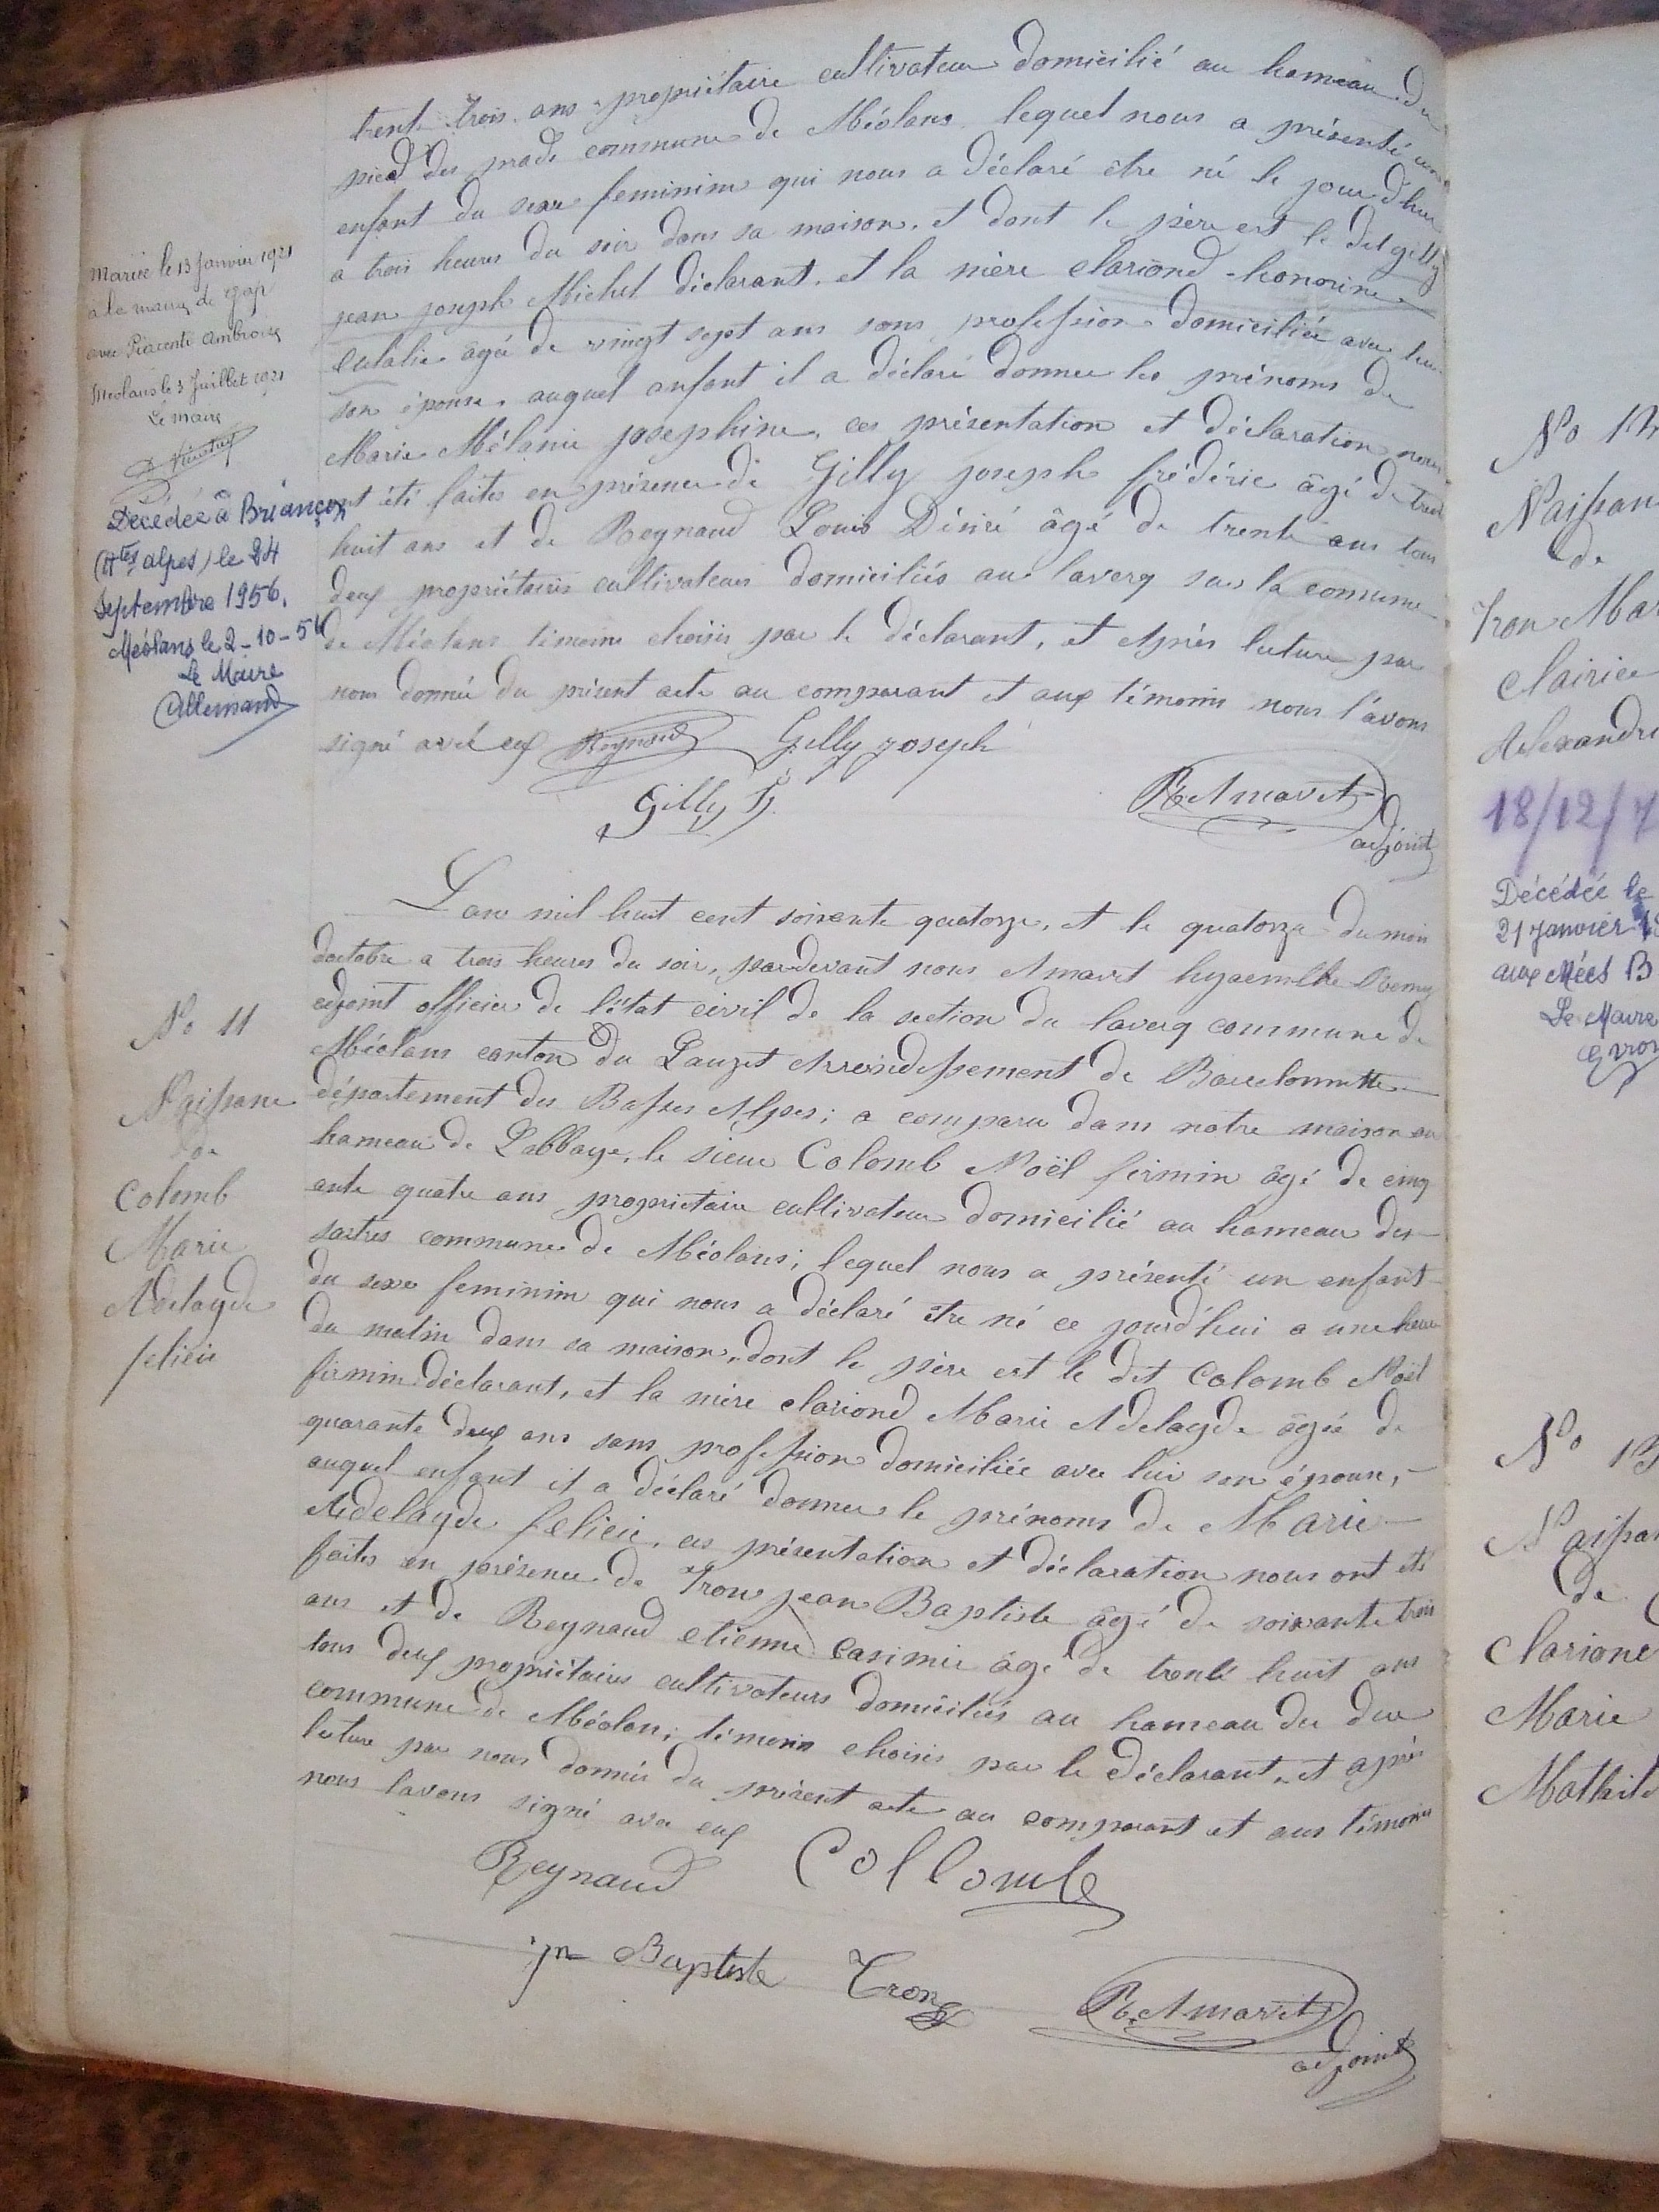 trente trois ans propriétaire cultivateur domicilié au hameau du
pied des prads commune de Méolans lequel nous a présenté un
enfant du sexe feminim qui nous a déclaré être né le jourd'hui
a trois heures du soir dans sa maison, et dont le père est le dit gilly
jean joseph Michel déclarant, et la mère clariond honorine
Eulalie âgée de vingt sept ans sans profession domiciliée avec lui
son épouse, auquel anfant il a déclaré donner les prénoms de
Marie Mélanie josephine, ces présentation et déclaration nous
ont été faites en présence de Gilly joseph frédéric âgé de trente
huit ans et de Reynaud Louis Désiré âgé de trente ans tous
deux propriétaires cultivateurs domiciliés au laverq sus la comune
de Méolans témoins choisis par le déclarant, et après lecture par
nous donnée du présent acte au comparant et aux témoins nous l'avons
signé avec eux Reynaud Gilly joseph
Gilly
R Amavet
adjoint
Marié le 13 Janvier 1921
à la mairie de Gap
avec Piacente Ambroise
Méolans le 3 Juillet 1921
Le maire
Décédée à Briançon
(Htes alpes) le 24
Septembre 1956.
Méolans le 2-10-56
Le Maire
Allemand
L'an mil huit cent soixente quatorze, et le quatorze du mois
doctobre a trois heures du soir, pardevant nous Amavet hyacinthe Rémy
adjoint officier de l'état civil de la section du laverq commune de
Méolans canton du Lauzet Arrondissement de Barcelonnette
département des Basses Alpes; a comparu dans notre maison au
hameau de Labbaye, le sieur Colomb Noël firmin âgé de cinq
ante quatre ans proprietaire cultivateur domicilié au hameau des
sartres commune de Méolans; lequel nous a présenté un enfant
du sexe feminim qui nous a déclaré être né ce jourd'hui a une heure
du matin dans sa maison, dont le père est le dit Colomb Noël
firmin déclarant, et la mère clariond Marie Adelayde âgée de
quarante deux ans sans profession domiciliée avec lui son épouse,
auquel enfant il a déclaré donner le prénoms de Marie
Adelayde felicie, ces présentation et déclaration nous ont été
faites en présence de Tron jean Baptiste âgé de soixante trois
ans et de Reynaud etienne Casimir âgé de trente huit ans
tous deux propriétaires cultivateurs domiciliés au hameau du duc
commune de Méolans; témoins choisis par le déclarant, et après
lecture par nous donnée du présent acte au comparant et aux témoins
nous lavons signé avec eux
Reynaud Collomb
jn Baptiste Tron
R. Amavet
adjoint
No 11
Naissance
de
Colomb
Marie
Adelayde
felicie
No 12
Naissan
de
Tron Mar
clairice
Alexandri
18/12/7
Décédée le
21 janvier
aux Mées B
Le Maire
No 13
Naissan
de
Clarione
Marie
Mathild